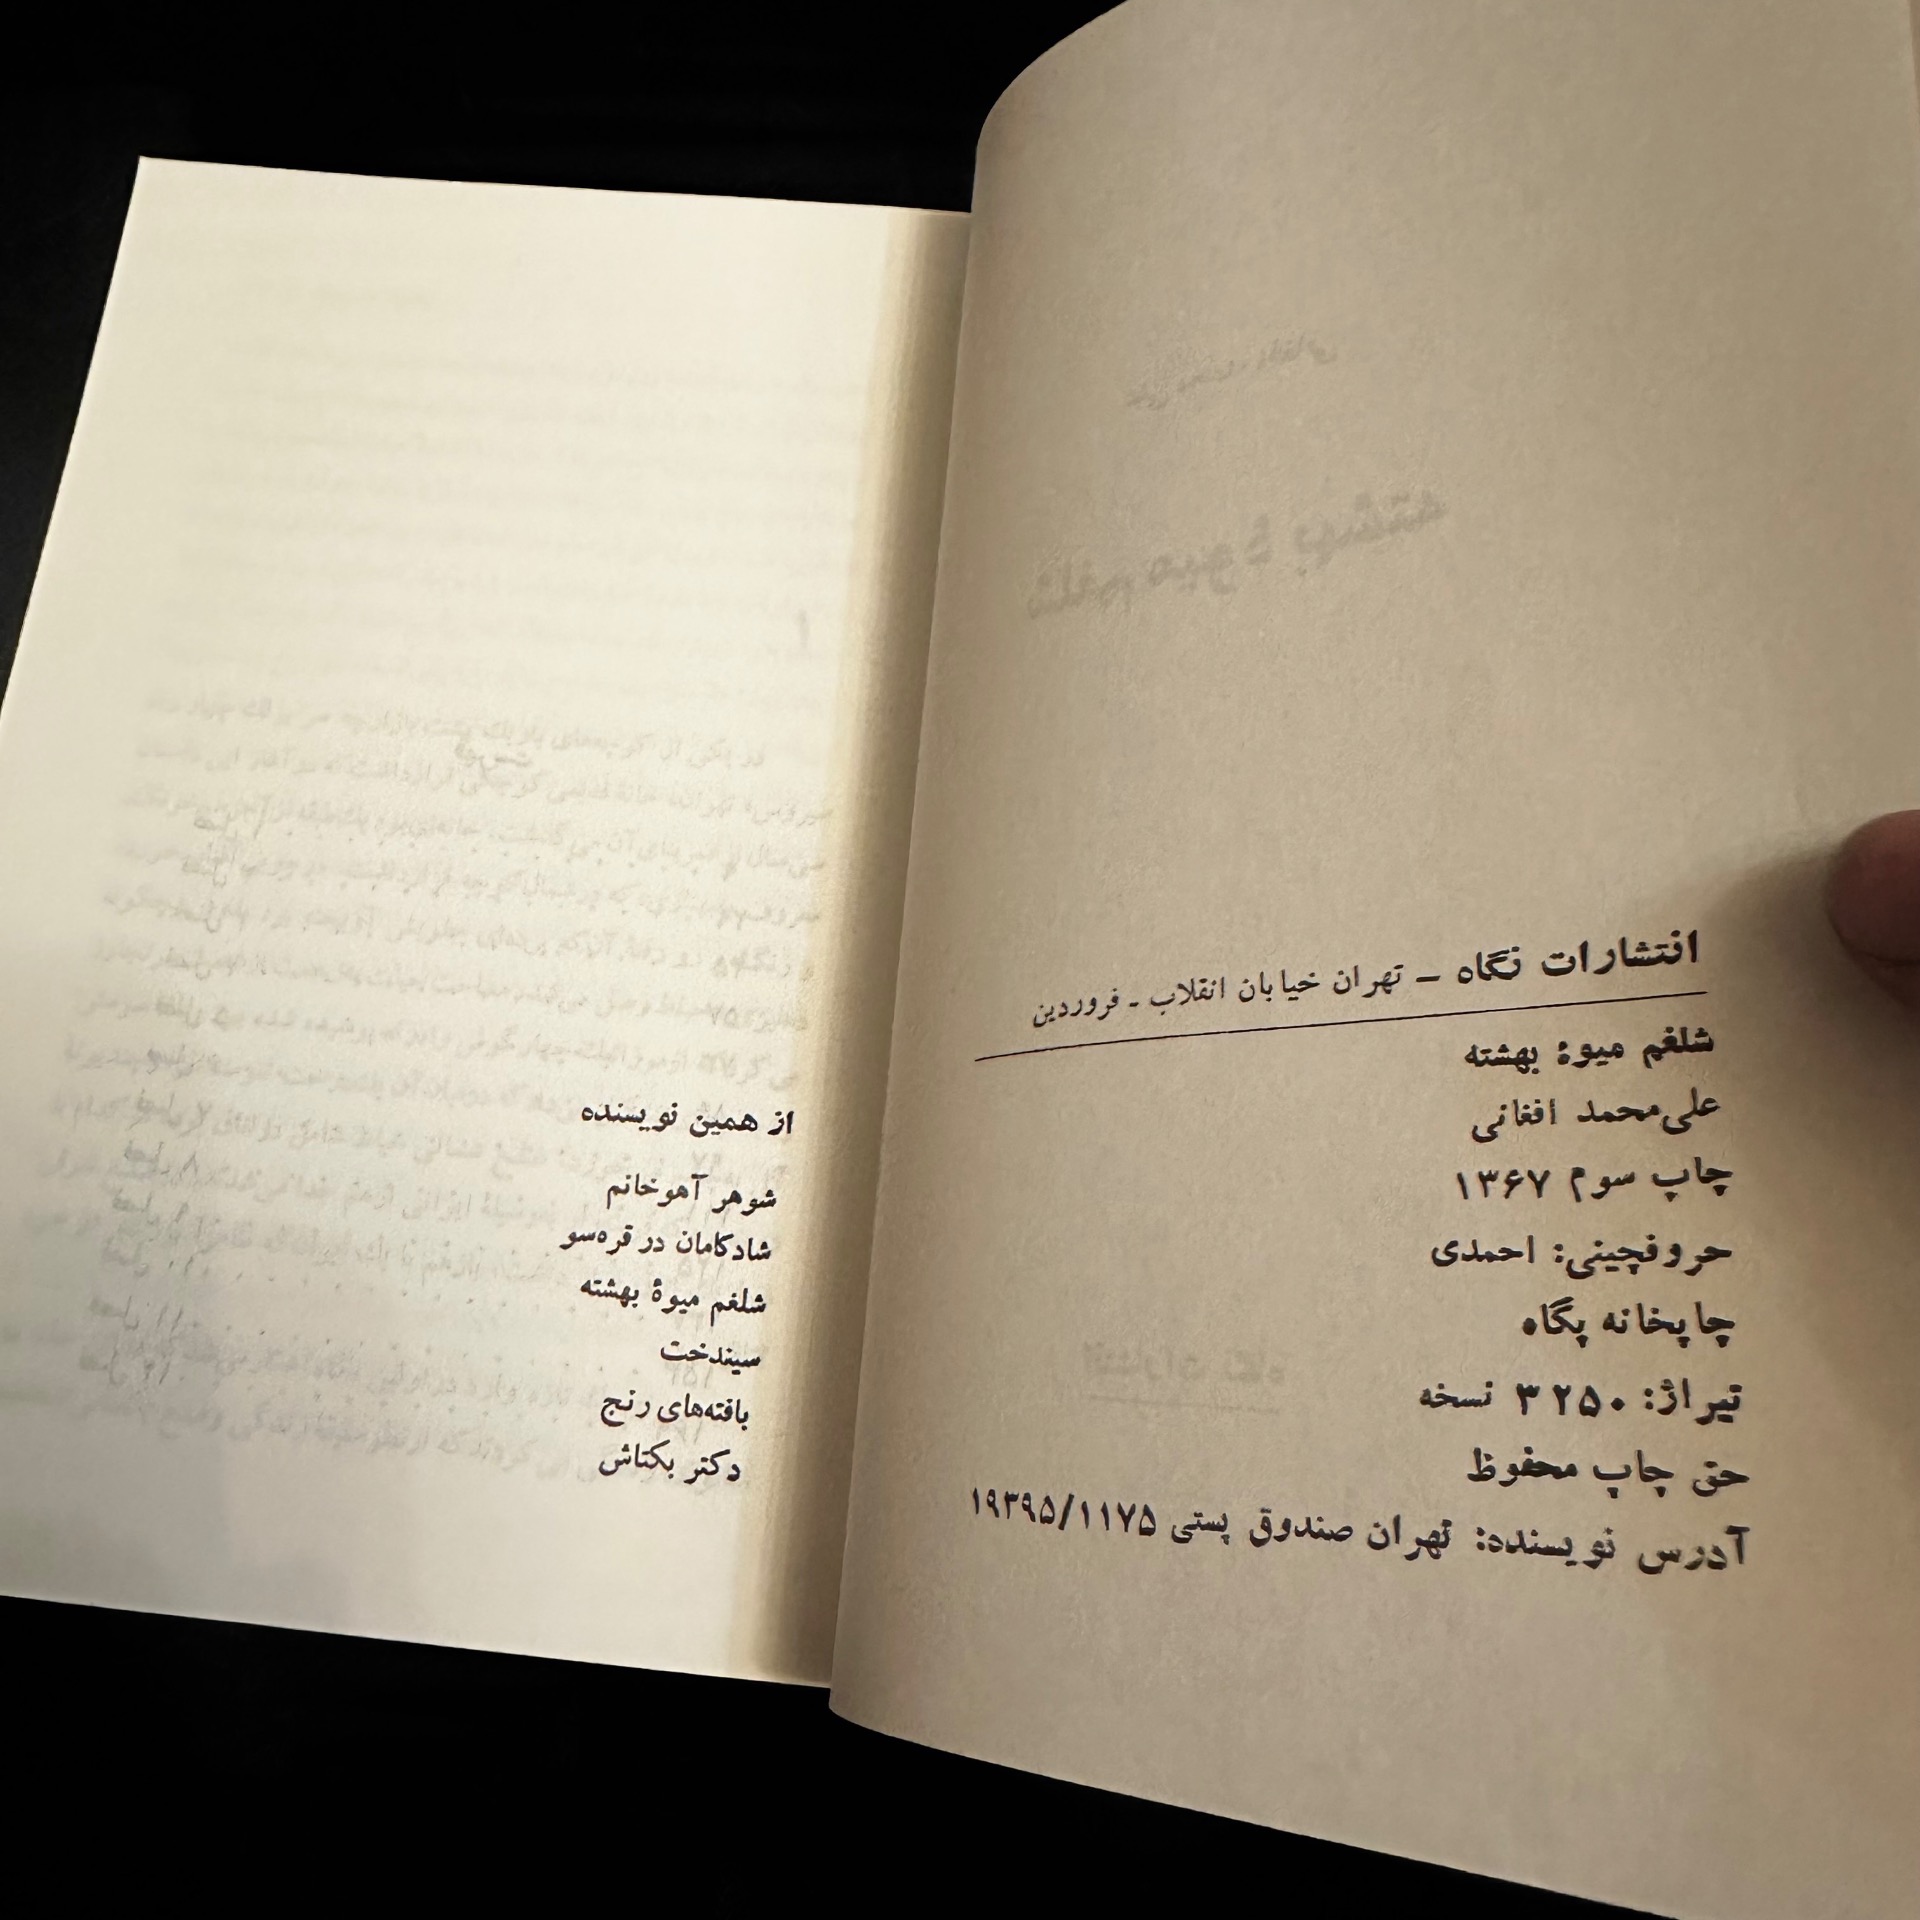 انتشارات نگاه – تهران خیابان انقلاب - فروردین
شلغم میوهٔ بهشته
علی‌محمد افغانی
چاپ سوم ۱۳۶۷
حروفچینی: احمدی
چاپخانه پگاه
تیراژ: ۳۲۵۰ نسخه
حق چاپ محفوظ
آدرس نویسنده: تهران صندوق پستی ۱۹۳۹۵/۱۱۷۵
از همین نویسنده
شوهر آهوخانم
شادکامان در قره‌سو
شلغم میوهٔ بهشته
سیندخت
بافته‌های رنج
دکتر بکتاش